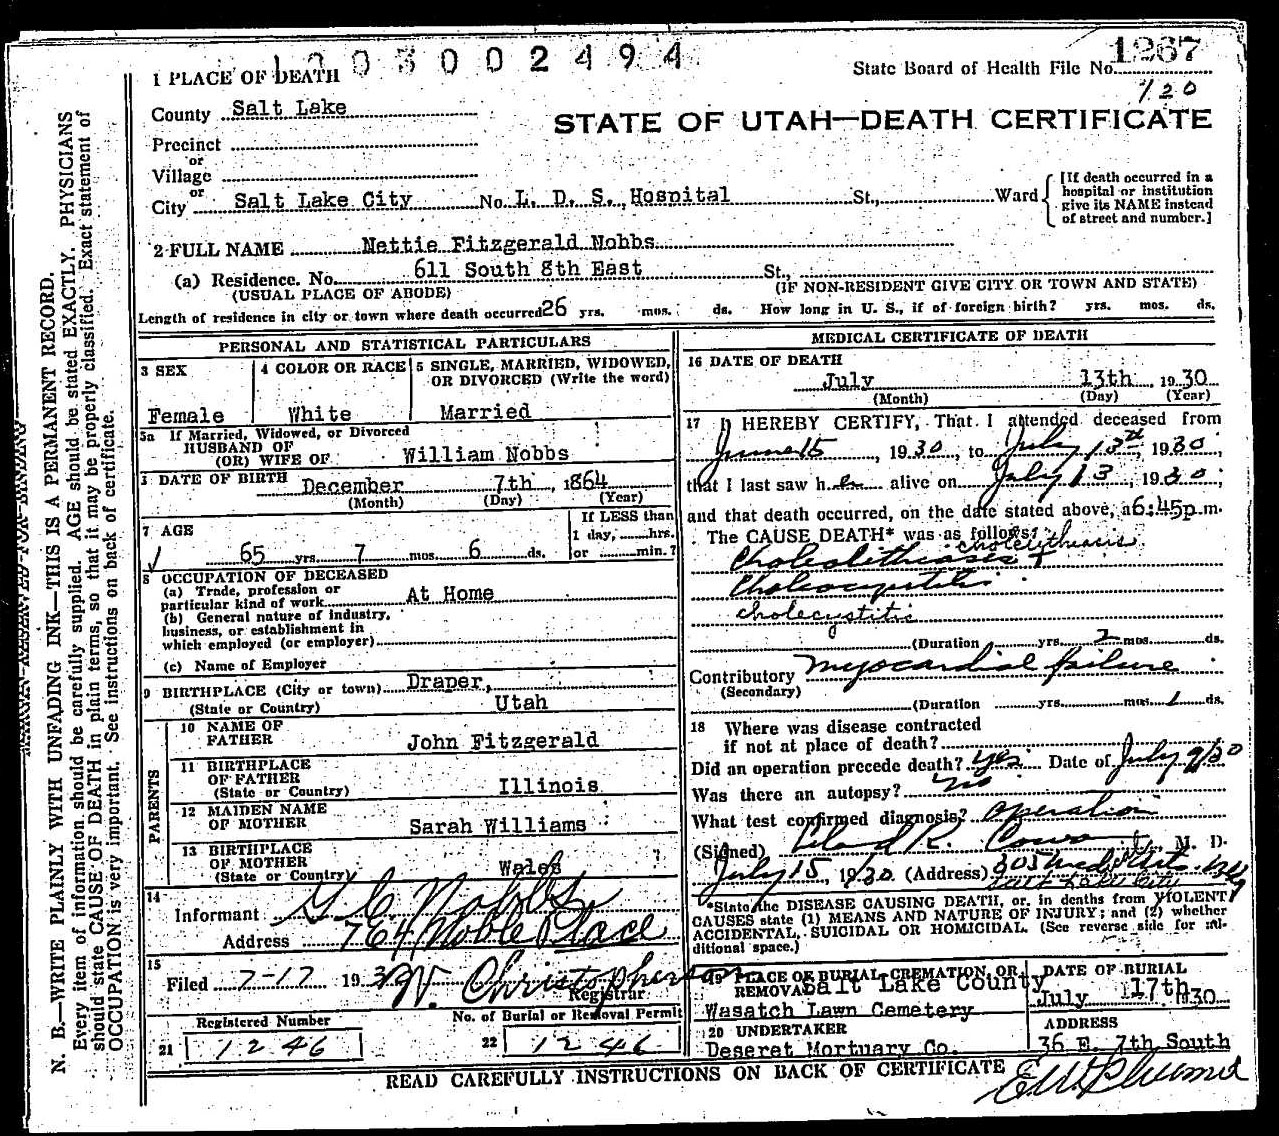 3 0 0 2 4 9 4
1 PLACE OF DEATH
State Board of Health File No. 1267
120
County Salt Lake
STATE OF UTAH—DEATH CERTIFICATE
Precinct
or
Village
or
City Salt Lake City No. L. D. S. Hospital St., Ward
[If death occurred in a hospital or institution give its NAME instead of street and number.]
2 FULL NAME Nettie Fitzgerald Nobbs
(a) Residence. No. 611 South 8th East St.,
(USUAL PLACE OF ABODE) (IF NON-RESIDENT GIVE CITY OR TOWN AND STATE)
Length of residence in city or town where death occurred 26 yrs. mos. ds. How long in U. S., if of foreign birth? yrs. mos. ds.
PERSONAL AND STATISTICAL PARTICULARS
3 SEX 4 COLOR OR RACE 5 SINGLE, MARRIED, WIDOWED,
OR DIVORCED (Write the word)
Female White Married
5a If Married, Widowed, or Divorced
HUSBAND OF
(OR) WIFE OF William Nobbs
DATE OF BIRTH December 7th, 1864
(Month) (Day) (Year)
7 AGE
If LESS than
1 day, hrs.
65 yrs. 7 mos. 6 ds. or min.?
8 OCCUPATION OF DECEASED
(a) Trade, profession or
particular kind of work At Home
(b) General nature of industry,
business, or establishment in
which employed (or employer)
(c) Name of Employer
9 BIRTHPLACE (City or town) Draper,
(State or Country) Utah
PARENTS
10 NAME OF
FATHER John Fitzgerald
11 BIRTHPLACE
OF FATHER
(State or Country) Illinois
12 MAIDEN NAME
OF MOTHER Sarah Williams
13 BIRTHPLACE
OF MOTHER
(State or Country) Wales
14
Informant G C Nobbs
Address 764 Noble Place
15
Filed 7-17 1930 W. Christopherson
Registrar
Registered Number No. of Burial or Removal Permit
21 1246 22 1246
MEDICAL CERTIFICATE OF DEATH
16 DATE OF DEATH
July 13th, 1930
(Month) (Day) (Year)
17 I HEREBY CERTIFY, That I attended deceased from
June 15, 1930, to July 13th, 1930,
that I last saw her alive on July 13, 1930,
and that death occurred, on the date stated above, at 6:45p m.
The CAUSE DEATH* was as follows:
cholelithiasis
Cholelithiasis &
Cholecystitis
cholecystitis
(Duration yrs. 2 mos. ds.
Contributory Myocardial failure
(Secondary)
(Duration yrs. mos. 1 ds.
18 Where was disease contracted
if not at place of death?
Did an operation precede death? yes Date of July 9/30
Was there an autopsy? no
What test confirmed diagnosis? operation
(Signed) Leland R. Cowan, M. D.
July 15, 1930 (Address) 305 Med. Arts Bldg
Salt Lake City
*State the DISEASE CAUSING DEATH, or, in deaths from VIOLENT
CAUSES state (1) MEANS AND NATURE OF INJURY; and (2) whether
ACCIDENTAL, SUICIDAL OR HOMICIDAL. (See reverse side for additional space.)
19 PLACE OF BURIAL, CREMATION, OR
REMOVAL Salt Lake County
Wasatch Lawn Cemetery
DATE OF BURIAL
July 17th 1930
20 UNDERTAKER
Deseret Mortuary Co.
ADDRESS
36 E. 7th South
READ CAREFULLY INSTRUCTIONS ON BACK OF CERTIFICATE
MARGIN RESERVED FOR BINDING
N. B.—WRITE PLAINLY WITH UNFADING INK—THIS IS A PERMANENT RECORD.
Every item of information should be carefully supplied. AGE should be stated EXACTLY. PHYSICIANS
should state CAUSE OF DEATH in plain terms, so that it may be properly classified. Exact statement of
OCCUPATION is very important. See instructions on back of certificate.